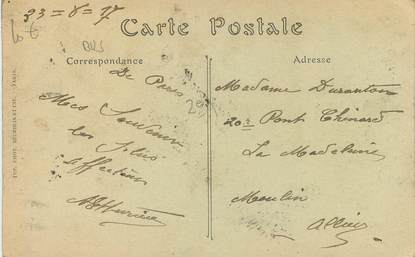 Carte Postale
Correspondance
De Paris
Mes Souvenirs
les plus
affectueux
Adresse
Madame Duranton
20 Pont Chinard
La Madeleine
Moulin
Allier